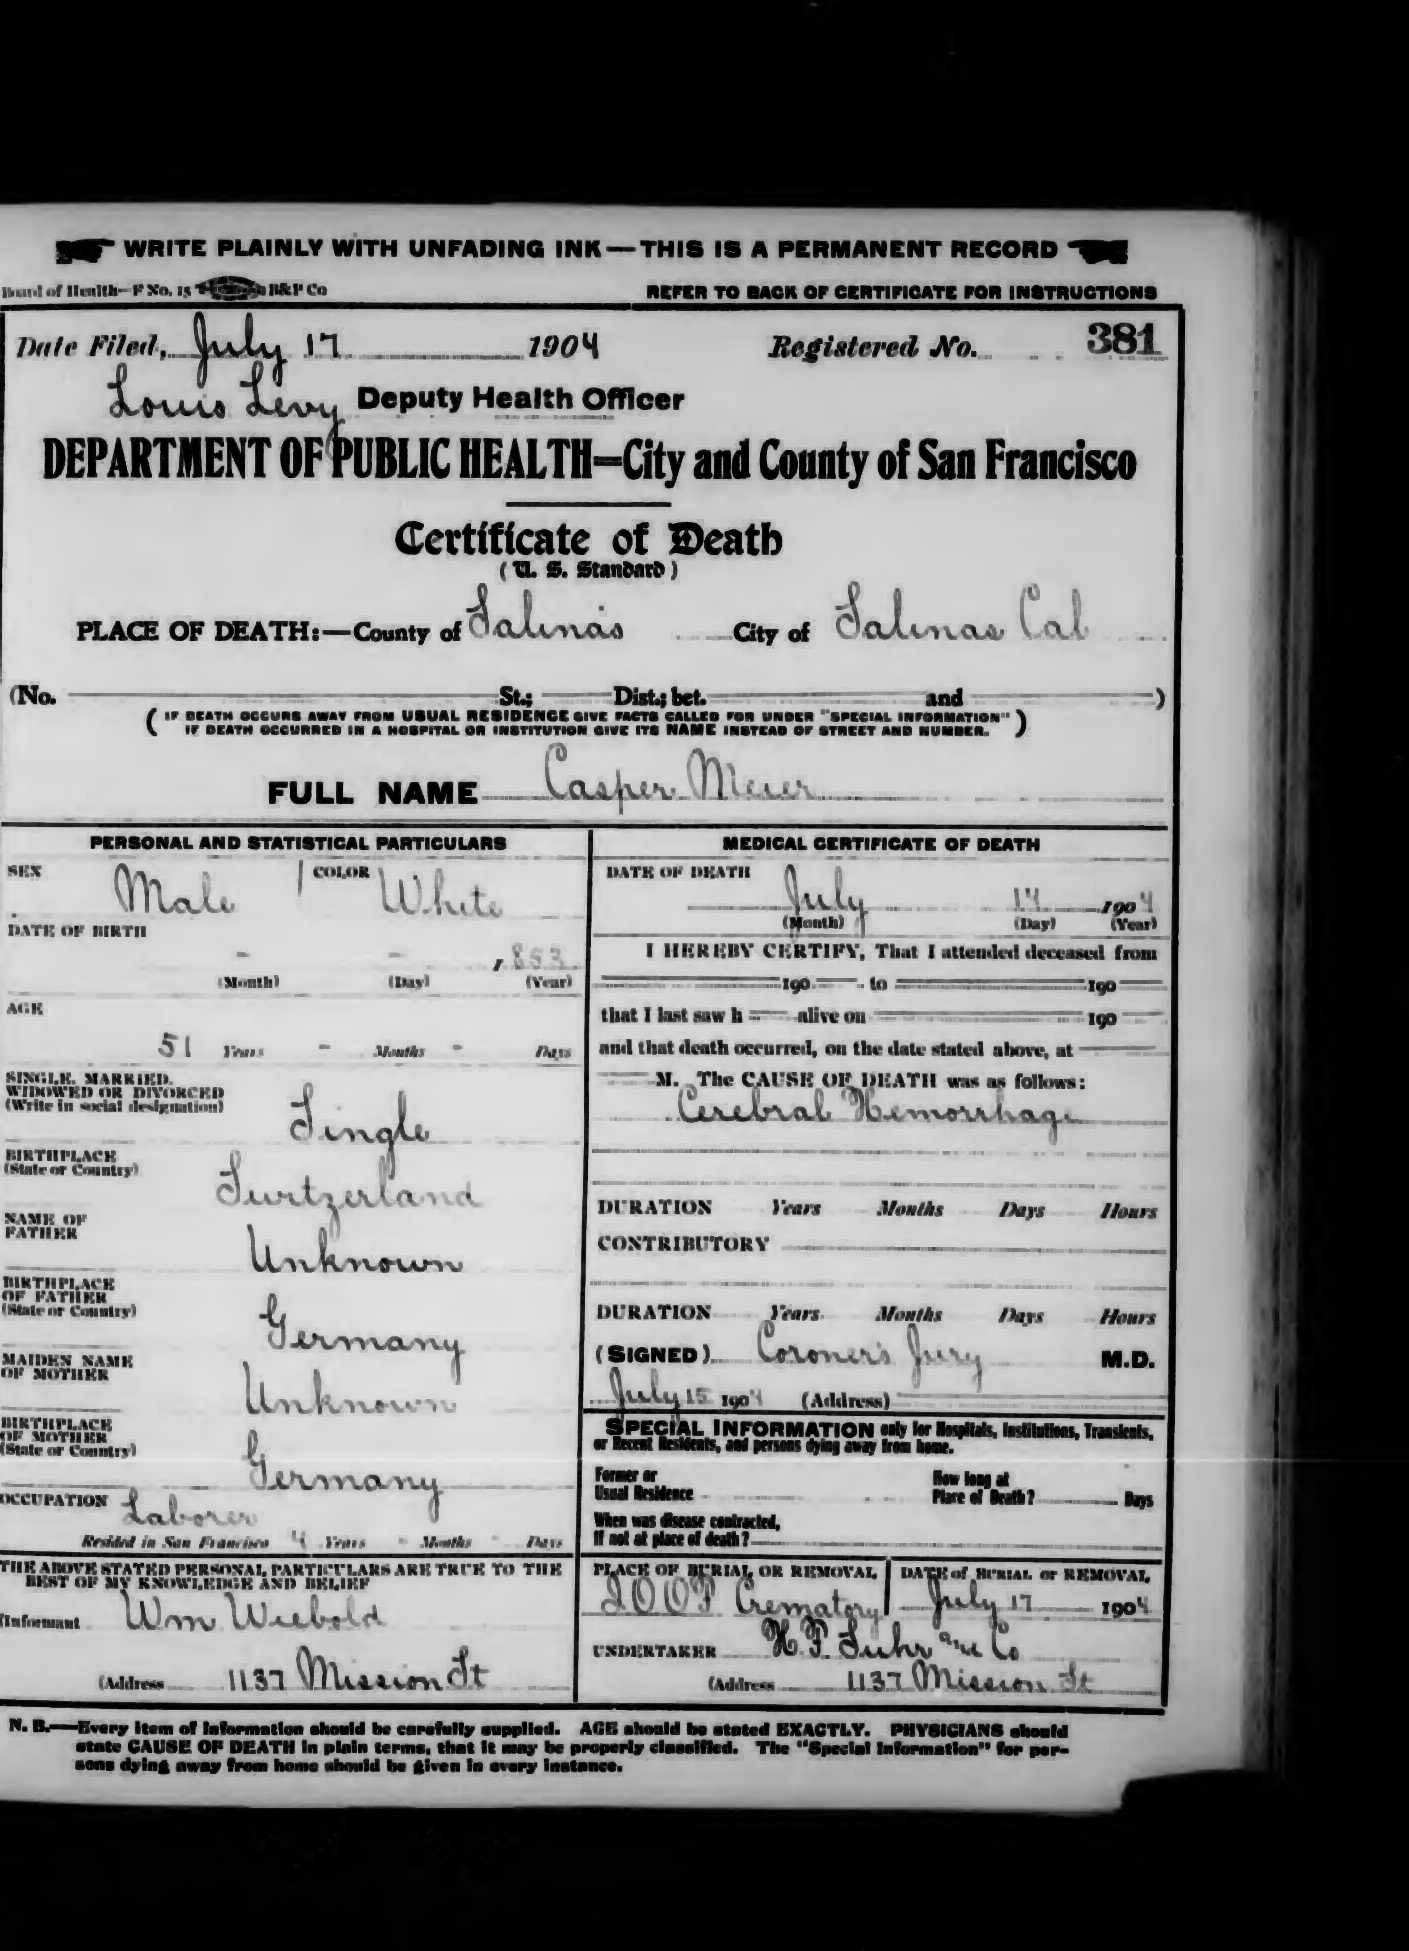 WRITE PLAINLY WITH UNFADING INK—THIS IS A PERMANENT RECORD
Board of Health—F No. 15 B&P Co REFER TO BACK OF CERTIFICATE FOR INSTRUCTIONS
Date Filed, July 17 1904 Registered No. 381
Louis Levy Deputy Health Officer
DEPARTMENT OF PUBLIC HEALTH=City and County of San Francisco
Certificate of Death
(U. S. Standard)
PLACE OF DEATH:—County of Salinas City of Salinas Cal
(No. St.; Dist.; bet. and )
(IF DEATH OCCURS AWAY FROM USUAL RESIDENCE GIVE FACTS CALLED FOR UNDER "SPECIAL INFORMATION"
IF DEATH OCCURRED IN A HOSPITAL OR INSTITUTION GIVE ITS NAME INSTEAD OF STREET AND NUMBER.)
FULL NAME Casper Meier
PERSONAL AND STATISTICAL PARTICULARS
SEX Male COLOR White
DATE OF BIRTH
- - 1853
(Month) (Day) (Year)
AGE
51 Years - Months - Days
SINGLE, MARRIED,
WIDOWED OR DIVORCED
(Write in social designation) Single
BIRTHPLACE
(State or Country) Switzerland
NAME OF
FATHER Unknown
BIRTHPLACE
OF FATHER
(State or Country) Germany
MAIDEN NAME
OF MOTHER Unknown
BIRTHPLACE
OF MOTHER
(State or Country) Germany
OCCUPATION Laborer
Resided in San Francisco 4 Years - Months - Days
THE ABOVE STATED PERSONAL PARTICULARS ARE TRUE TO THE
BEST OF MY KNOWLEDGE AND BELIEF
(Informant Wm Wiebold
(Address 1137 Mission St
MEDICAL CERTIFICATE OF DEATH
DATE OF DEATH
July 14 1904
(Month) (Day) (Year)
I HEREBY CERTIFY, That I attended deceased from
190 to 190
that I last saw h alive on 190
and that death occurred, on the date stated above, at
M. The CAUSE OF DEATH was as follows:
Cerebral Hemorrhage
DURATION Years Months Days Hours
CONTRIBUTORY
DURATION Years Months Days Hours
(SIGNED) Coroner's Jury M.D.
July 15 1904 (Address)
SPECIAL INFORMATION only for Hospitals, Institutions, Transients,
or Recent Residents, and persons dying away from home.
Former or
Usual Residence
How long at
Place of Death? Days
When was disease contracted,
If not at place of death?
PLACE OF BURIAL OR REMOVAL DATE of BURIAL or REMOVAL
I O O F Crematory July 17 1904
UNDERTAKER H. F. Suhr and Co
(Address 1137 Mission St
N. B.—Every item of information should be carefully supplied. AGE should be stated EXACTLY. PHYSICIANS should
state CAUSE OF DEATH in plain terms, that it may be properly classified. The "Special Information" for per-
sons dying away from home should be given in every instance.